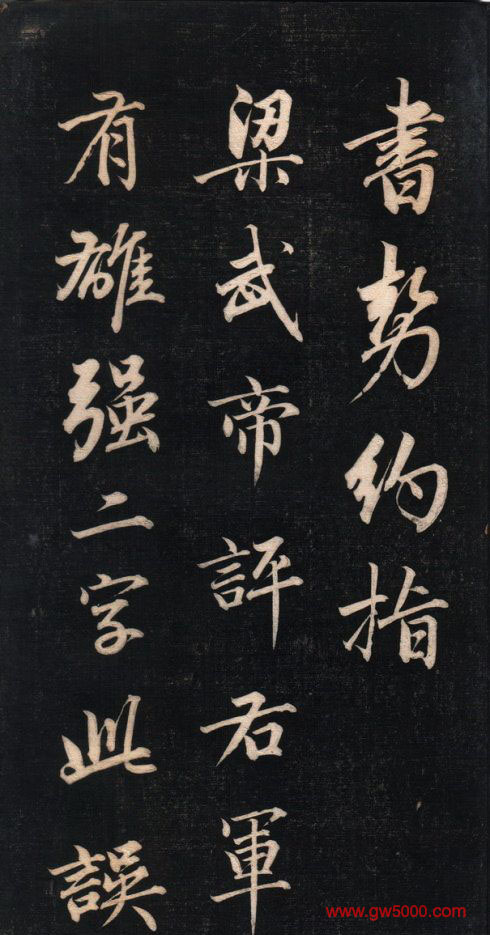 書勢約指
梁武帝評右軍
有雄強二字此誤
www.gw5000.com